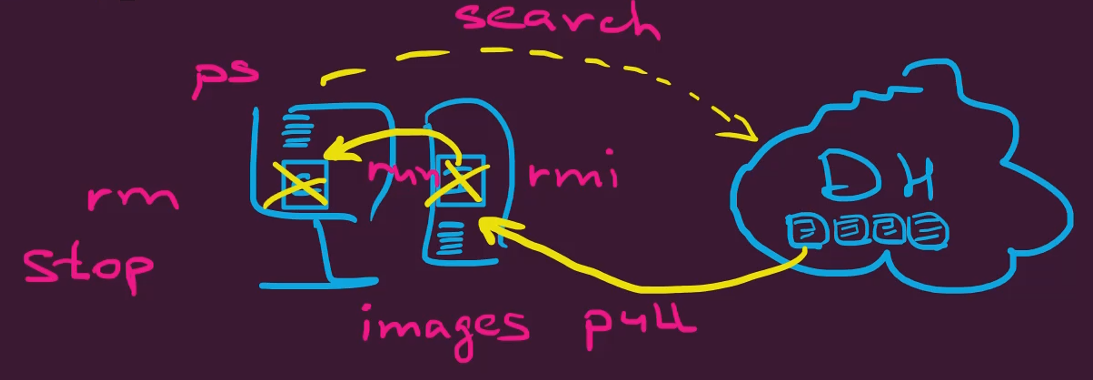 search
ps
run
rmi
DH
rm
stop
images pull